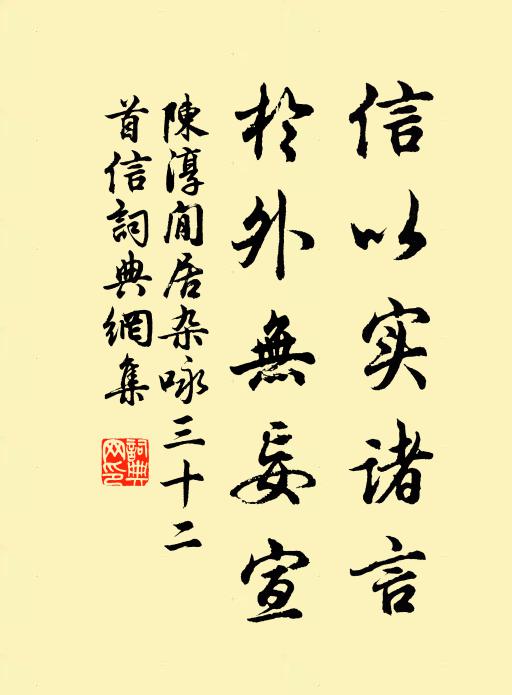 信以实诸言
於外無妄宣
陳淳閒居杂咏三十二
首信詞典網集
詞典
网印